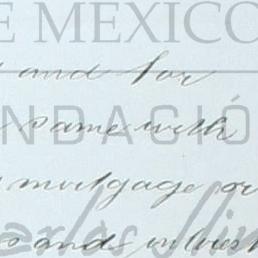 E MEXICO
and for
NDACIÓ
same with
mortgage or
arlos Slim
s and interest